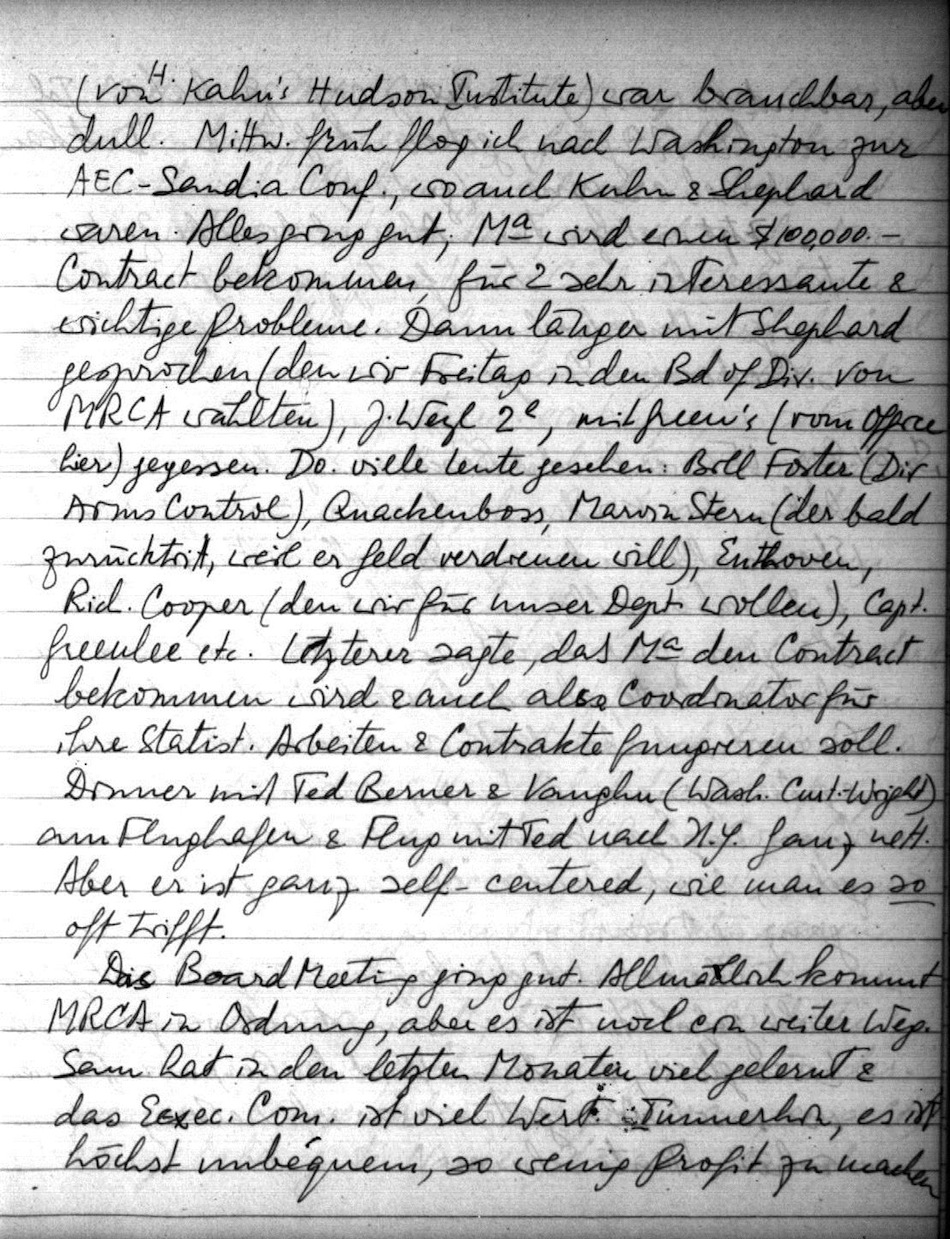 (von H. Kahn's Hudson Institute) war brauchbar, aber
dull. Mittw. früh flog ich nach Washington zur
AEC-Sandia Conf., wo auch Kuhn & Shephard
waren. Alles ging gut, Ma wird einen $100,000.-
Contract bekommen, für 2 sehr interessante &
wichtige Probleme. Dann länger mit Shephard
gesprochen (den wir Freitag in den Bd of Dir. von
MRCA wählten), J. Weyl 2e, mit Green's (vom Office
hier) gegessen. Do. viele Leute gesehen: Bill Foster (Dir
Arms Control), Quackenboss, Marvin Stern (der bald
zurücktritt, weil er Geld verdienen will), Enthoven,
Rich. Cooper (den wir für unser Dept. wollen), Capt.
Greenlee etc. Letzterer sagte, das Ma den Contract
bekommen wird & auch als Coordinator für
ihre Statist. Arbeiten & Contrakte fungieren soll.
Dinner mit Ted Berner & Vaughn (Wash. Curt.-Wright)
am Flughafen & Flug mit Ted nach N.Y. Ganz nett.
Aber er ist ganz self-centered, wie man es so
oft trifft.
Das Board Meeting ging gut. Allmählich kommt
MRCA in Ordnung, aber es ist noch ein weiter Weg.
Sam hat in den letzten Monaten viel gelernt &
das Exec. Com. ist viel Wert. Immerhin, es ist
höchst unbequem, so wenig Profit zu machen